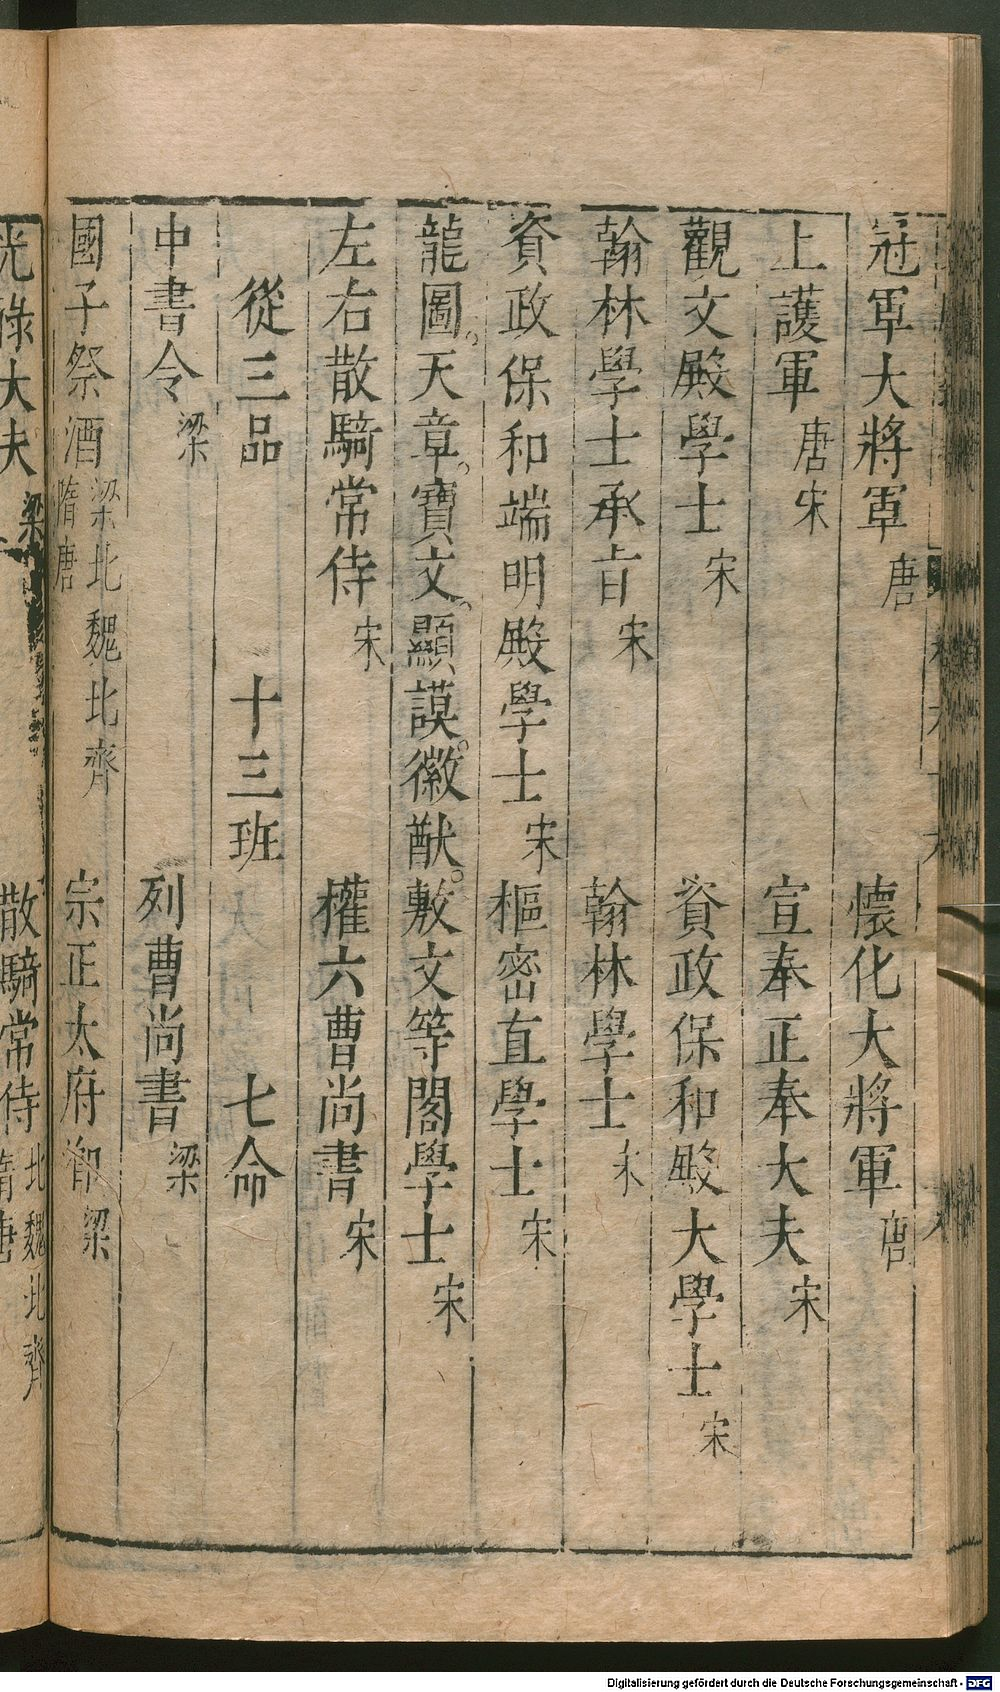 冠軍大將軍 唐 懷化大將軍 唐
上護軍 唐 宋 宣奉正奉大夫 宋
觀文殿學士 宋 資政保和殿大學士 宋
翰林學士承㫖 宋 翰林學士 宋
資政保和端明殿學士 宋 樞密直學士 宋
龍圖。天章。寶文。顯謨。徽猷。敷文等閣學士 宋
左右散騎常侍 宋 權六曹尚書 宋
從三品 十三班 七命
中書令 梁 列曹尚書 梁
國子祭酒 梁北魏北齊隋唐 宗正太府卿 梁
光祿大夫 梁 散騎常侍 北魏北齊隋唐
Digitalisierung gefördert durch die Deutsche Forschungsgemeinschaft - DFG